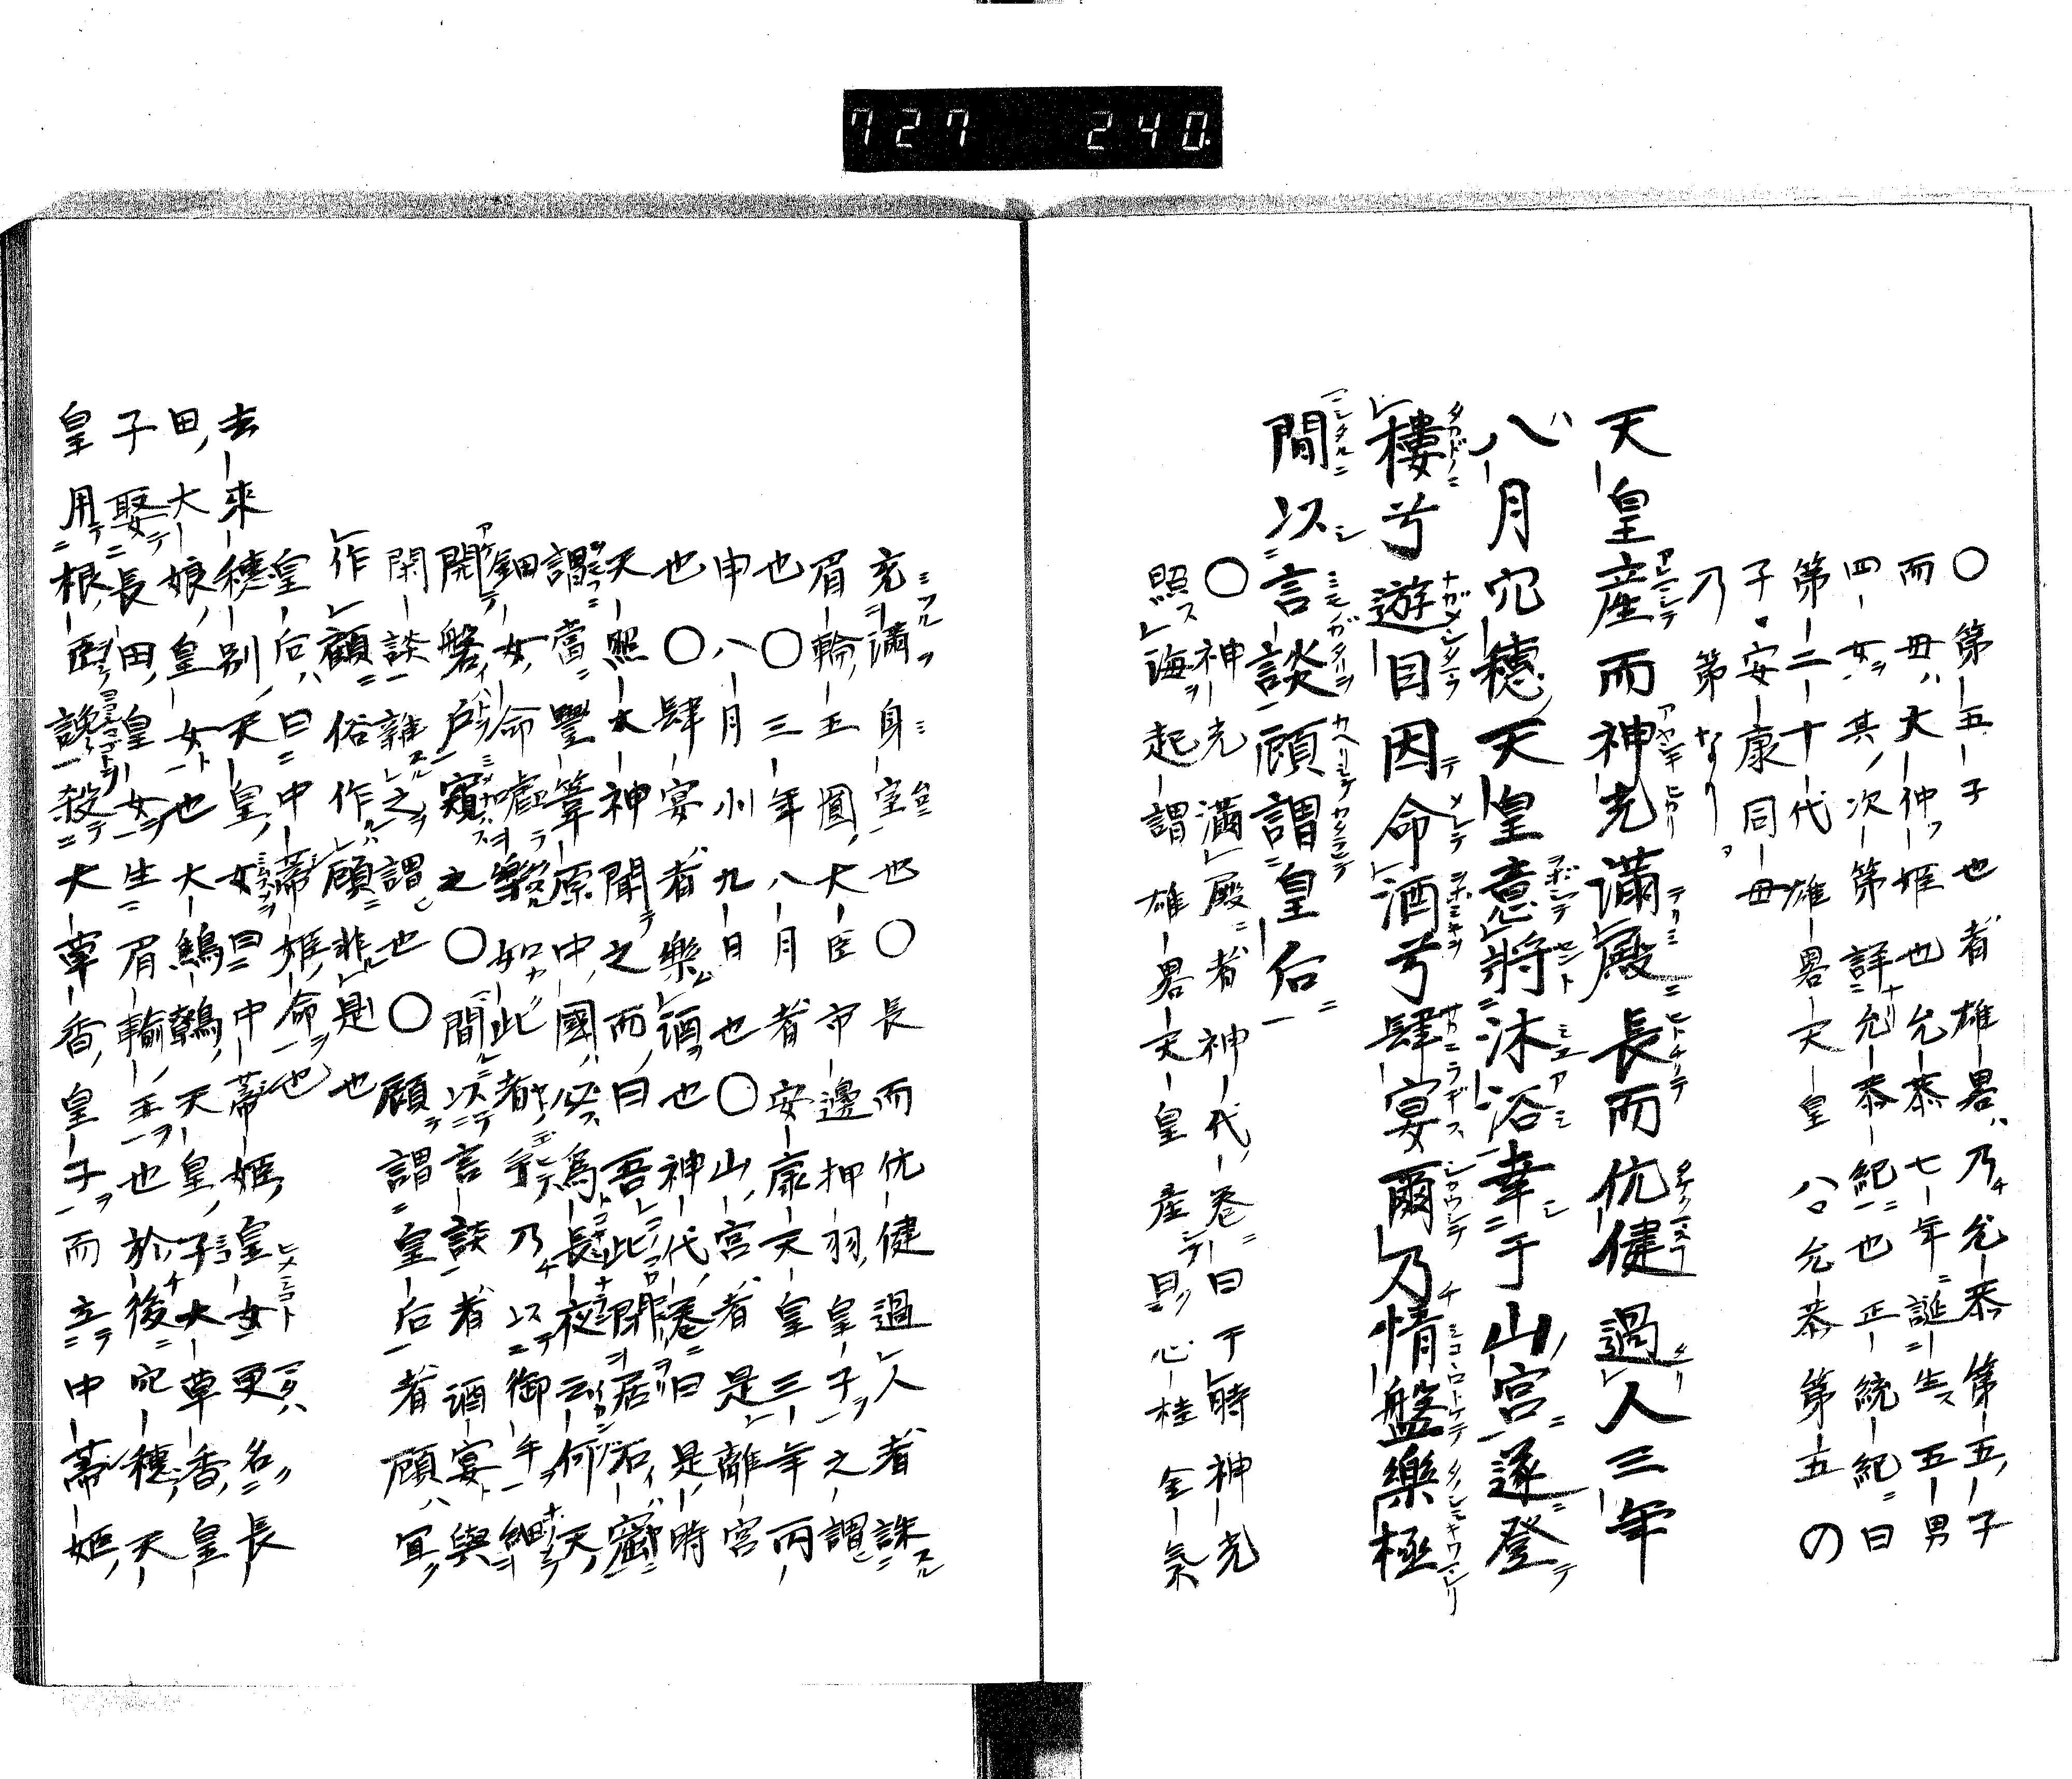 727 240
○第五子也者雄畧乃允恭第五子
而母大神姫也允恭七年誕生五男
四女其次第詳允恭紀也正統紀曰
第二十代雄畧天皇ハ允恭第五の
子安康同母
乃第なり
天皇産而神光滿殿長而伉健過人三年
八月穴穗天皇意將沐浴幸于山宮遂登
樓兮遊目因命酒兮肆宴爾乃情盤樂極
間以言談顧謂皇后
○神光滿殿者神代卷曰于時神光
照海起謂雄畧天皇産曰心桂全氣
充滿身室也○長而伉健過人者誅
眉輪王圓大臣市邊押羽皇子之謂
也○三年八月者安康天皇三年丙
申八月小九日也○山宮者是離宮
也○肆宴者樂酒也神代卷曰是時
天照太神聞之而曰吾比閉居石窟
謂當豐葦原中國必爲長夜云何天
鈿女命噓樂如此者乎乃以御手細
開磐戸窺之○間以言談者酒宴與
閑談雜之謂也○顧謂皇后者顧宜
作顧俗作顧非是也
皇后曰中蒂姫命也
去來穗別天皇女曰中蒂姫皇女更名長
田大娘皇女也大鷦鷯天皇子大草香皇
子娶長田皇女生眉輪王也於後穴穗天
皇用根臣讒殺大草香皇子而立中蒂姫